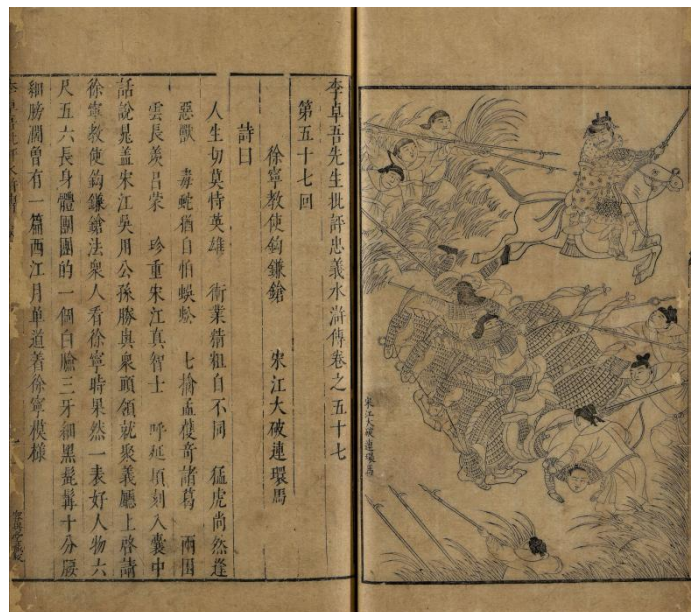 宋江大破連環馬
李卓吾先生批評忠義水滸傳卷之五十七
第五十七回
徐寧教使鉤鐮鎗　宋江大破連環馬
詩曰
人生切莫恃英雄　術業精粗自不同　猛虎尚然逢
惡獸　毒蛇猶自怕蜈蚣　七擒孟獲奇諸葛　兩困
雲長羨呂蒙　珍重宋江真智士　呼延頃刻入囊中
話說晁蓋宋江吳用公孫勝與衆頭領就聚義廳上啓請
徐寧教使鉤鐮鎗法衆人看徐寧時果然一表好人物六
尺五六長身體團團的一個白臉三牙細黑髭髯十分腰
細膀濶曾有一篇西江月單道着徐寧模樣